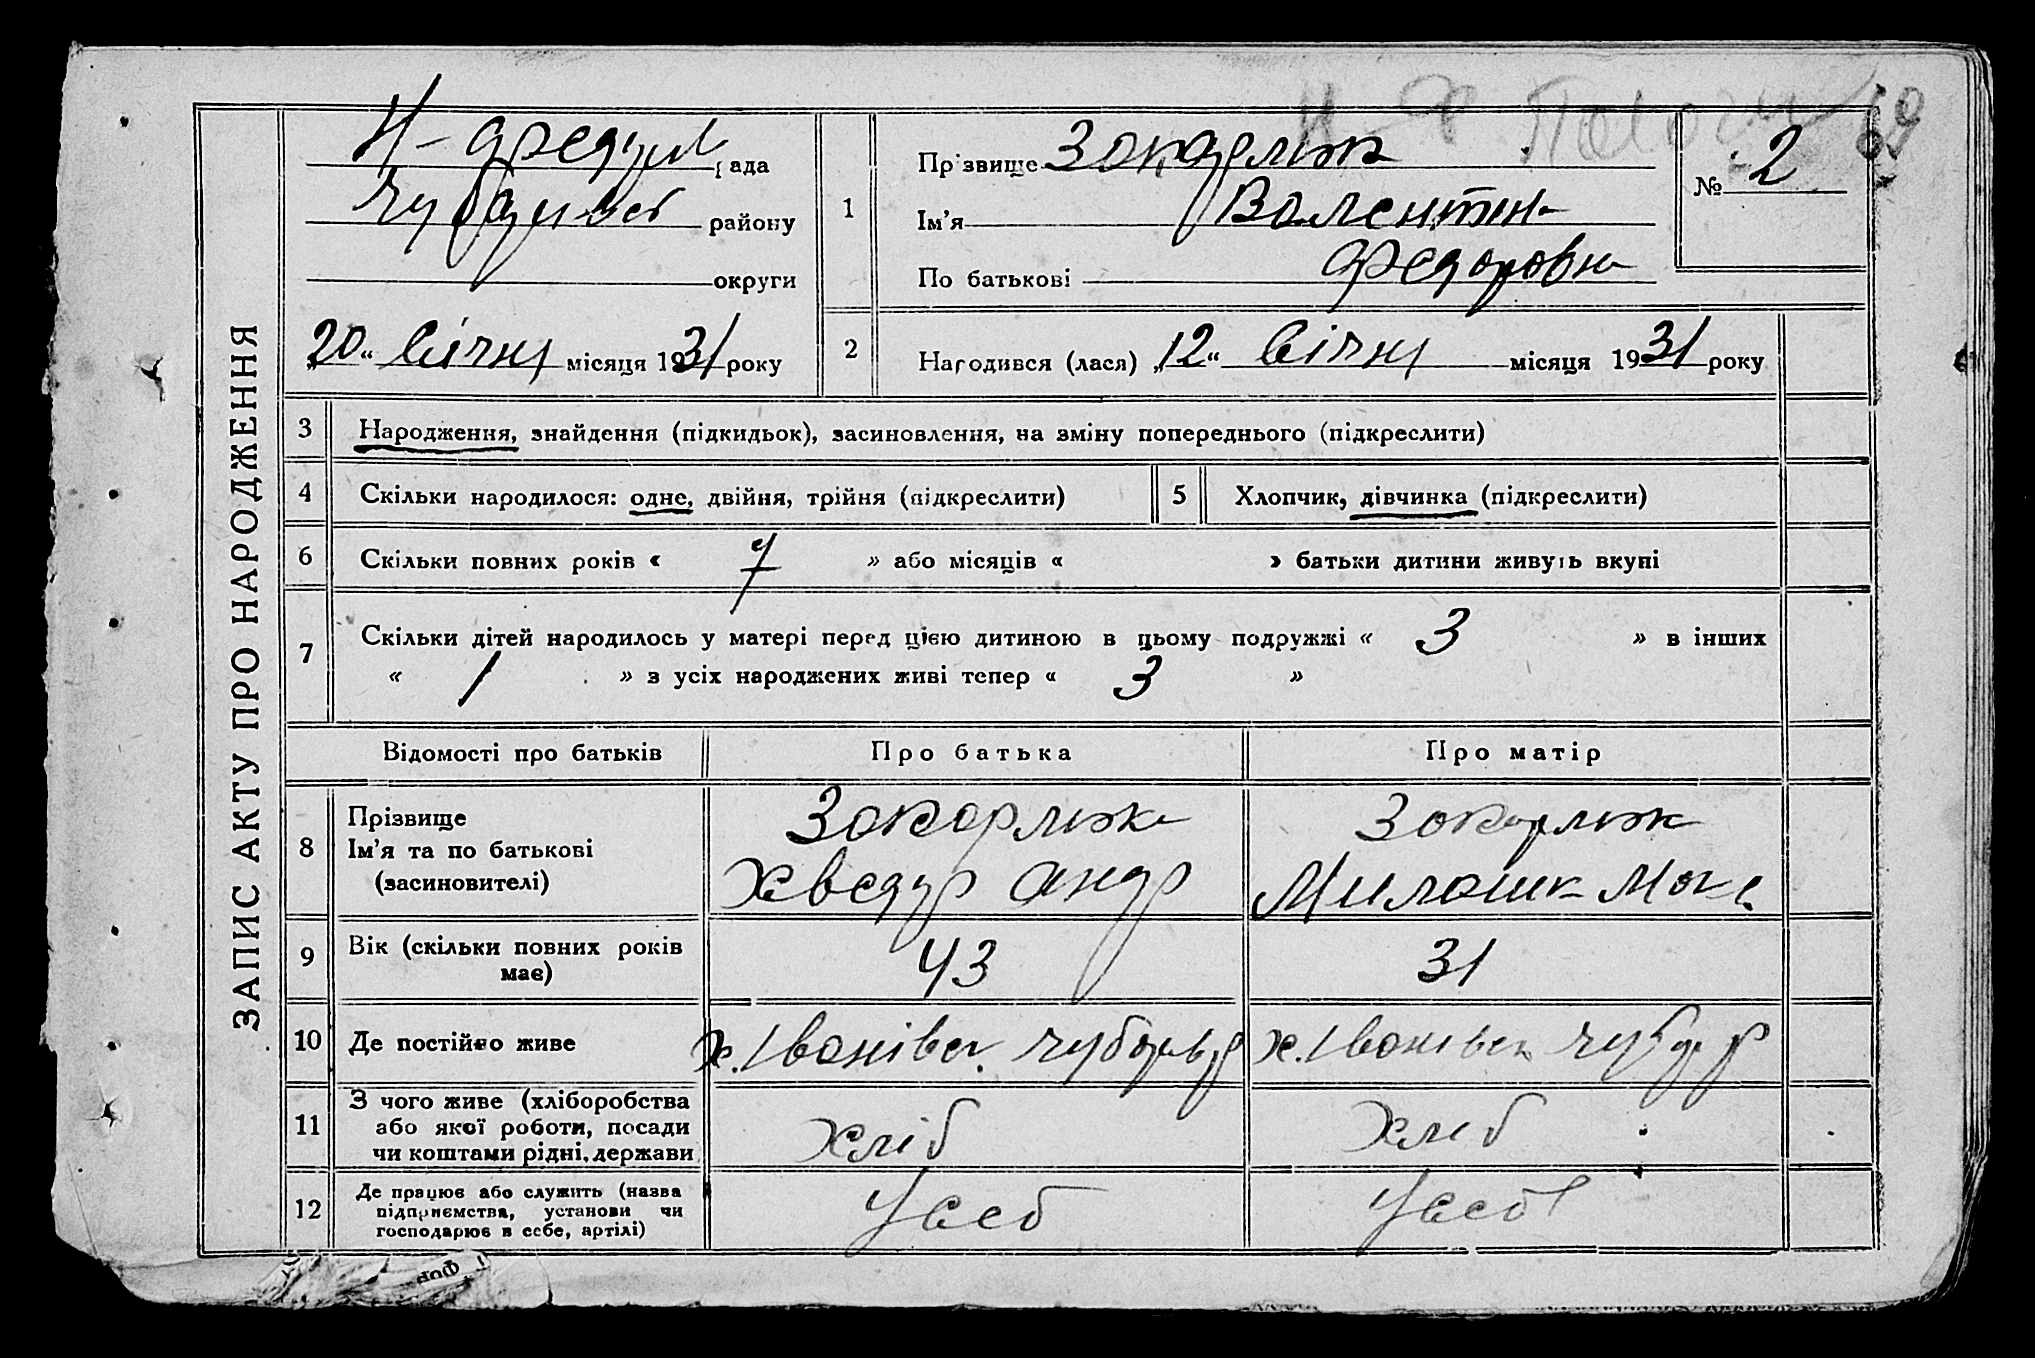 69
ЗАПИС АКТУ ПРО НАРОДЖЕННЯ
Н- рада
Чуб району
округи
„20“ Січня місяця 1931 року
№ 2
1
Прізвище
Ім'я Валентин
По батькові Федоровн
2
Народився (лася) „12“ Січня місяця 1931 року
3 Народження, знайдення (підкидьок), засиновлення, на зміну попереднього (підкреслити)
4 Скільки народилося: одне, двійня, трійня (підкреслити)
5 Хлопчик, дівчинка (підкреслити)
6 Скільки повних років « 7 » або місяців « » батьки дитини живуть вкупі
7 Скільки дітей народилось у матері перед цією дитиною в цьому подружжі « 3 » в інших
« 1 » з усіх народжених живі тепер « 3 »
Відомості про батьків Про батька Про матір
8 Прізвище
Ім'я та по батькові
(засиновителі)
Хведур Андр
9 Вік (скільки повних років
має)
43 31
10 Де постійно живе х. х.
11 З чого живе (хліборобства
або якої роботи, посади
чи коштами рідні, держави
хліб хліб
12 Де працює або служить (назва
підприємства, установи чи
господарює в себе, артілі)
У себ У себ